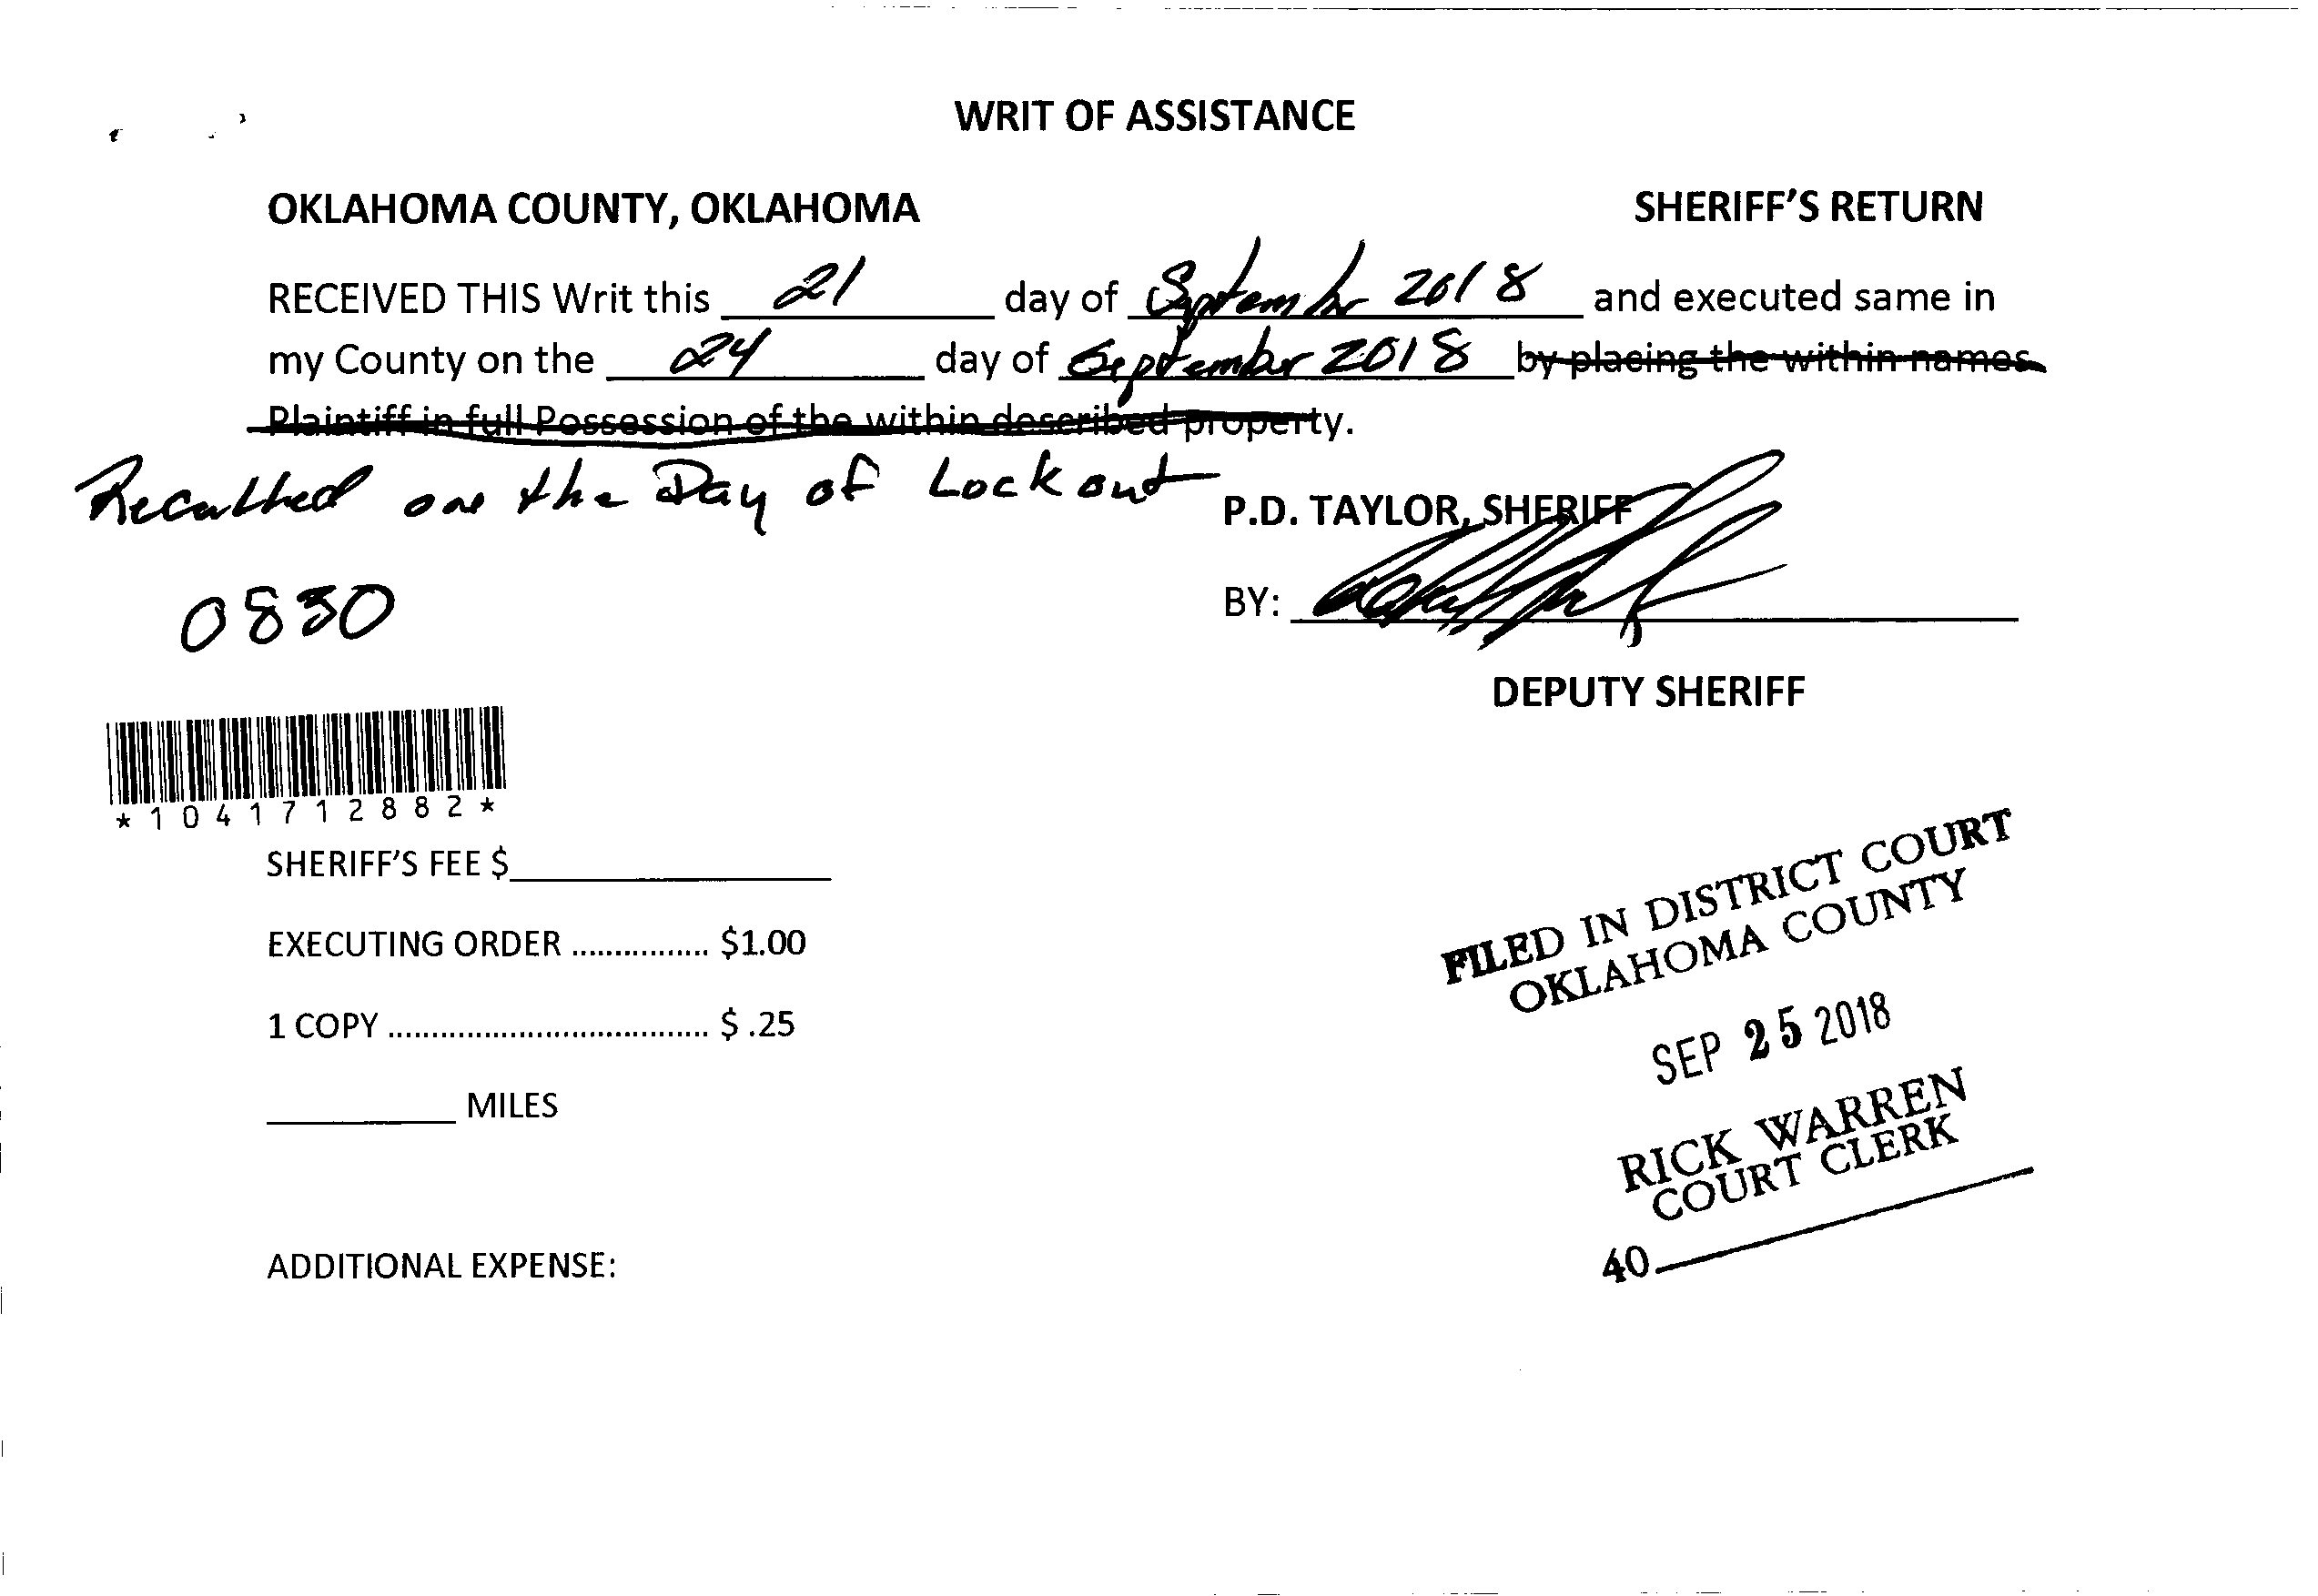 WRIT OF ASSISTANCE
OKLAHOMA COUNTY, OKLAHOMA SHERIFF'S RETURN
RECEIVED THIS Writ this 21 day of September 2018 and executed same in
my County on the 24 day of September 2018 by placing the within names
Plaintiff in full Possession of the within described property.
on the Day of Lockout
P.D. TAYLOR, SHERIFF
0830
BY:
DEPUTY SHERIFF
*1041712882*
SHERIFF'S FEE $
EXECUTING ORDER ................ $1.00
1 COPY ..................................... $ .25
MILES
ADDITIONAL EXPENSE:
FILED IN DISTRICT COURT
OKLAHOMA COUNTY
SEP 25 2018
RICK WARREN
COURT CLERK
40